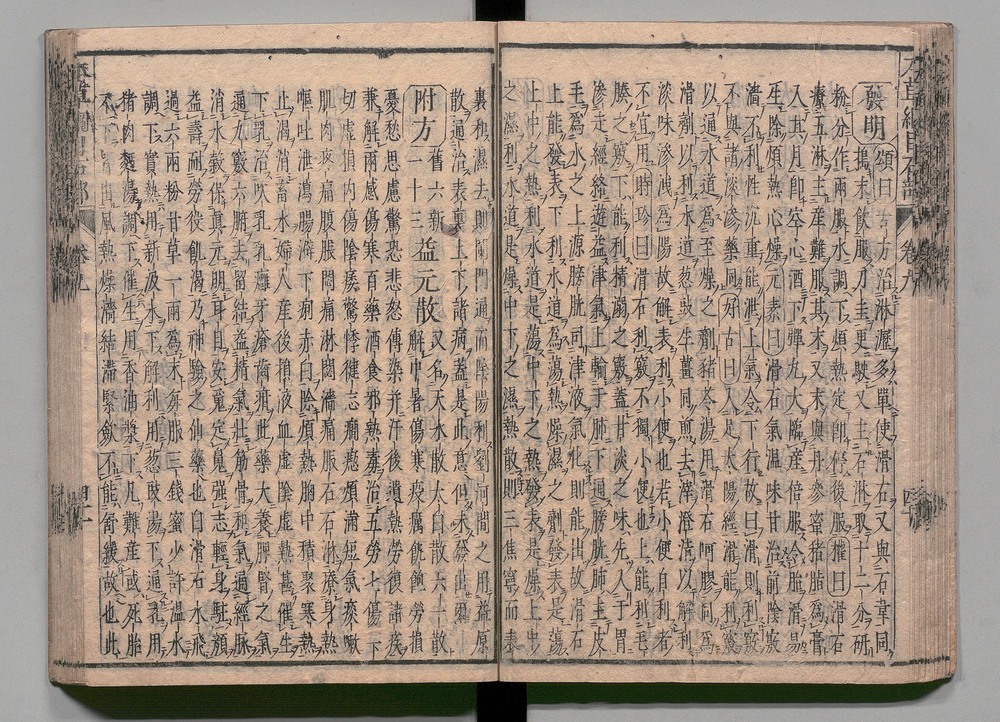 發明 頌曰古方治淋瀝多單使滑石又與石韋同
搗末飲服刀圭更駛又主石淋取十二分研
粉分作兩服水調下煩熱定即停後服權曰滑石
療五淋主産難服其末又末與丹參蜜猪脂為膏
入其月即空心酒下彈丸大臨産倍服令胎滑易
生除煩熱心燥元素曰滑石氣温味甘治前陰竅
濇不利性沉重能泄上氣令下行故曰滑則利竅
不與諸淡滲藥同好古曰入足太陽經滑能利竅
以通水道為至燥之劑猪苓湯用滑石阿膠同為
滑劑以利水道葱豉生薑同煎去滓澄清以解利
淡味滲洩為陽故解表利小便也若小便自利者
不宜用時珍曰滑石利竅不獨小便也上能利毛
腠之竅下能利精溺之竅蓋甘淡之味先入于胃
滲走經絡遊溢津氣上輸于肺下通膀胱肺主皮
毛為水之上源膀胱司津液氣化則能出故滑石
上能發表下利水道為蕩熱燥濕之劑發表是蕩
上中之熱利水道是蕩中下之熱發表是燥上中
之濕利水道是燥中下之濕熱散則三焦寧而表
裏和濕去則闌門通而陰陽利劉河間之用益原
散通治表裏上下諸病蓋是此意但未發出爾
附方 舊六新一十三 益元散 又名天水散太白散六一散解中暑傷寒疫癘飢飽勞損
憂愁思慮驚恐悲怒傳染并汗後遺熱勞復諸疾
兼解兩感傷寒百藥酒食邪熱毒治五勞七傷一
切虛損内傷陰痿驚悸健忘癇瘛煩滿短氣痰嗽
肌肉疼痛腹脹悶痛淋閟濇痛服石石淋療身熱
嘔吐泄瀉腸澼下痢赤白除煩熱胸中積聚寒熱
止渴消畜水婦人産後損液血虛陰虛熱甚催生
下乳治吹乳乳癰牙瘡齒疳此藥大養脾腎之氣
通九竅六腑去留結益精氣壯筋骨和氣通經脉
消水穀保真元明耳目安魂定魄強志輕身駐顔
益壽耐勞役飢渴乃神驗之仙藥也白滑石水飛
過六兩粉甘草一兩為末每服三錢蜜少許温水
調下實熱用新汲水下解利用葱豉湯下通乳用
猪肉麪湯調下催生用香油漿下凡難産或死胎
不下皆由風熱燥濇結滯緊歛不能舒緩故也此